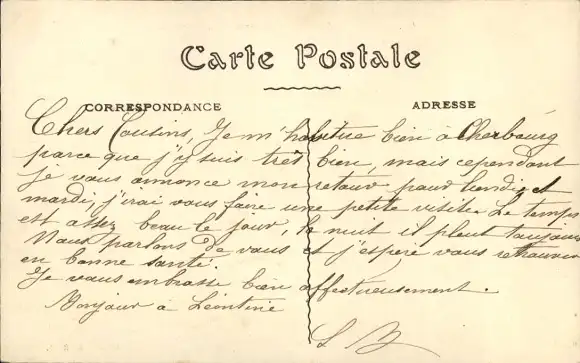 Carte Postale
CORRESPONDANCE
ADRESSE
Chers Cousins, Je m'habitue bien à Cherbourg
parce que j'y suis très bien, mais cependant
je vous annonce mon retour pour lundi, et
mardi, j'irai vous faire une petite visite. Le temps
est assez beau le jour, la nuit il pleut toujours
Nous parlons de vous et j'espère vous retrouver
en bonne santé.
Je vous embrasse bien affectueusement.
Bonjour à Léontine